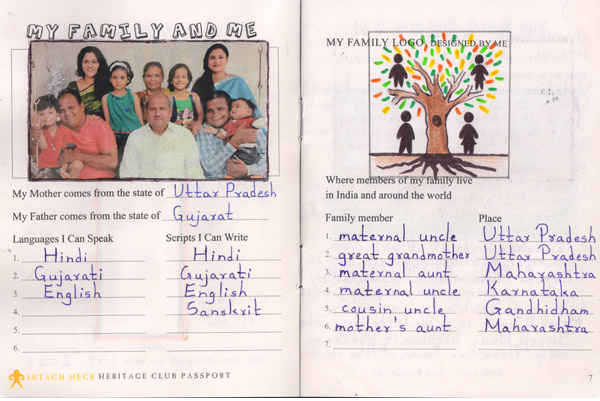 MY FAMILY AND ME
My Mother comes from the state of Uttar Pradesh
My Father comes from the state of Gujarat
Languages I Can Speak
1. Hindi
2. Gujarati
3. English
4.
5.
6.
Scripts I Can Write
Hindi
Gujarati
English
Sanskrit
INTACH HECS HERITAGE CLUB PASSPORT
MY FAMILY LOGO, DESIGNED BY ME
Where members of my family live
in India and around the world
Family member Place
1. maternal uncle Uttar Pradesh
2. great grandmother Uttar Pradesh
3. maternal aunt Maharashtra
4. maternal uncle Karnataka
5. cousin uncle Gandhidham
6. mother's aunt Maharashtra
7.
7